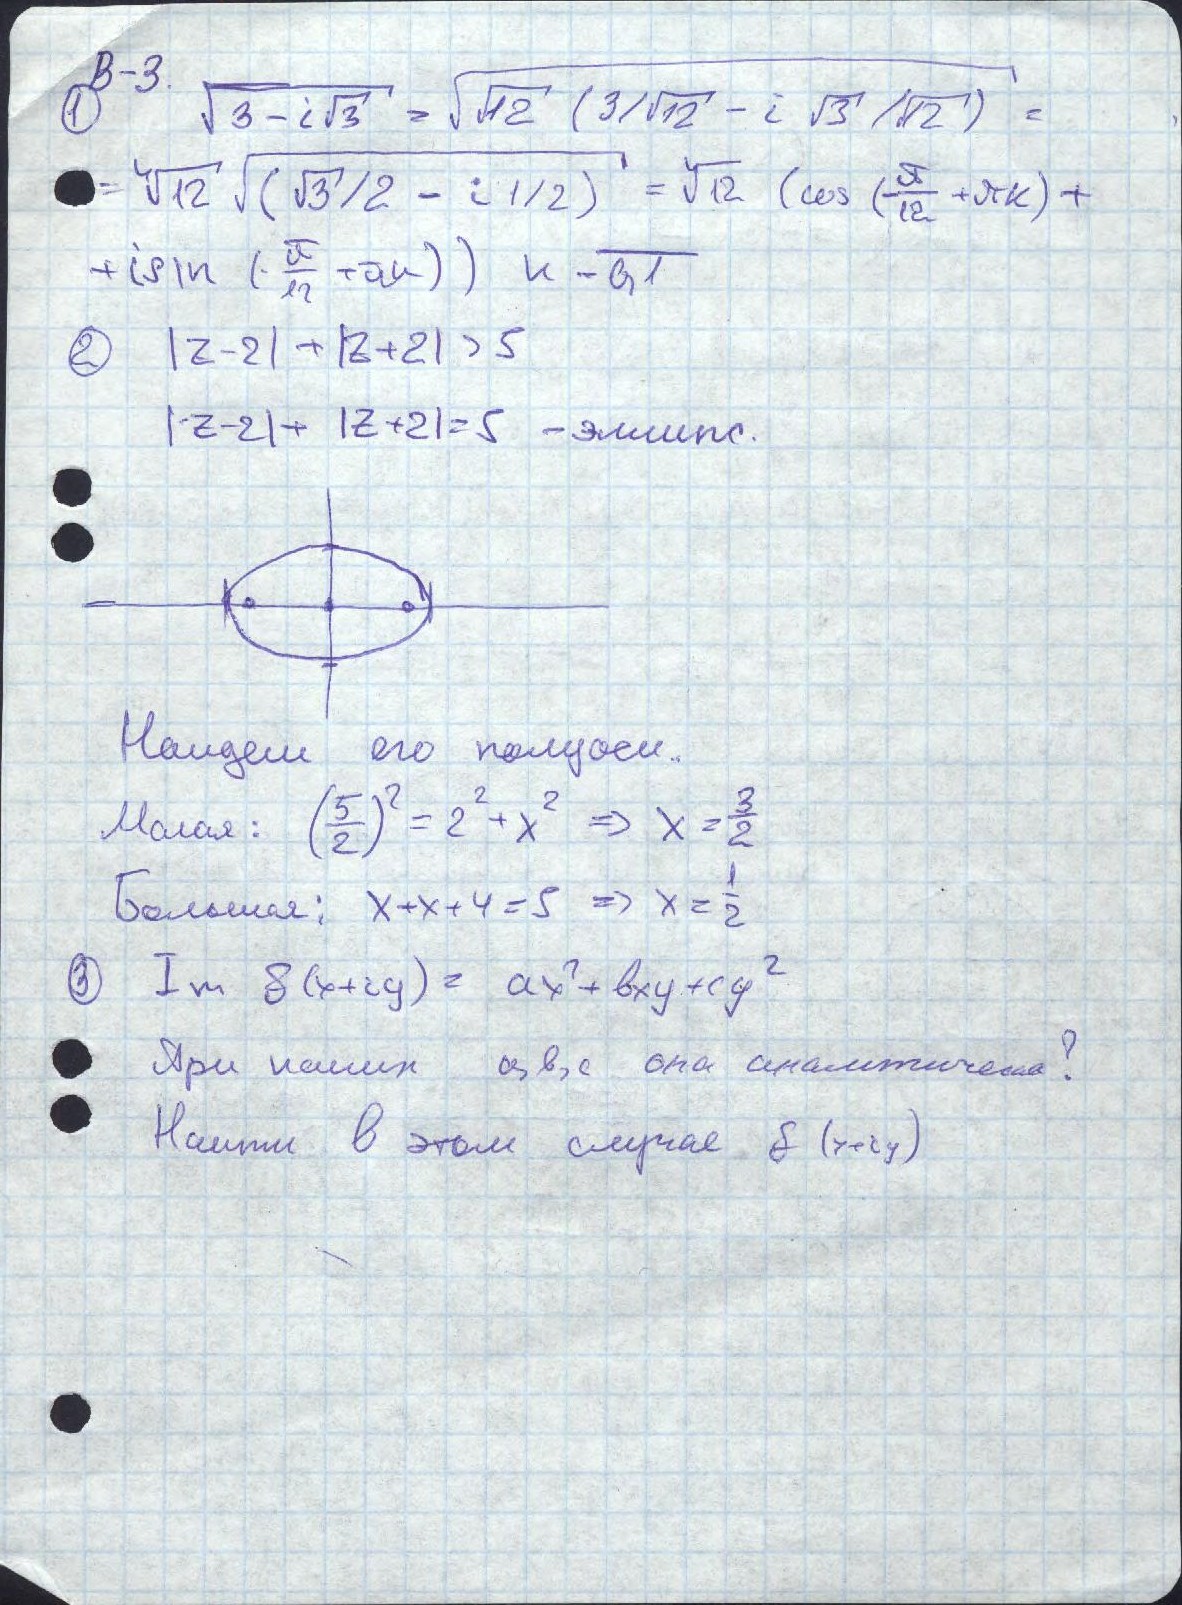 В-3.
① √(3-i√3) = √(√12 (3/√12 - i √3/√12)) =
= ∜12 √(√3/2 - i 1/2) = ∜12 (cos (-π/12 + πk) +
+ i sin (-π/12 + πk)) k = 0,1
② |z-2| + |z+2| > 5
|z-2| + |z+2| = 5 - эллипс.
Найдем его полуоси.
Малая: (5/2)² = 2² + x² => x = 3/2
Большая: x+x+4=5 => x = 1/2
③ Im f(x+iy) = ax²+bxy+cy²
При каких a,b,c она аналитична?
Найти в этом случае f(x+iy)